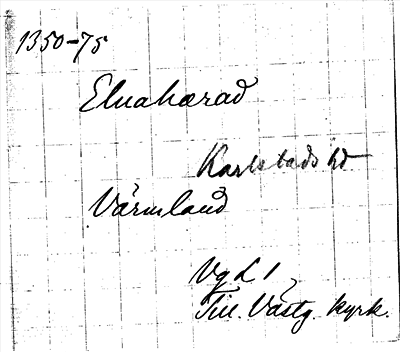 1350-75
Elvahærad
Karlstads hd
Värmland
VgL 1
Till. Västg. kyrk.